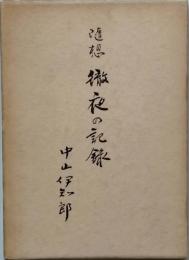 随想
徹夜の記録
中山伊知郎